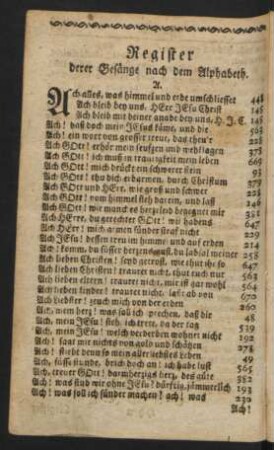 Register
derer Gesänge nach dem Alphabeth.
A.
Ach alles, was himmel und erde umschliesset 448
Ach bleib bey uns, HErr JEsu Christ 145
Ach bleib mit deiner gnade bey uns, H. J. C. 145
Ach! daß doch mein JEsus käme, und die
Ach! ein wort von grosser treue, das theu'r 223
Ach GOtt! erhör mein seufzen und wehklagen 378
Ach GOtt! ich muß in traurigkeit mein leben 669
Ach GOtt! mich drückt ein schwerer stein 93
Ach GOtt! thu dich erbarmen, durch Christum
Ach GOtt und HErr, wie groß und schwer
Ach GOtt! vom himmel sieh darein, und laß
Ach GOtt! wie manches herzeleid begegnet mir 381
Ach HErre, du gerechter GOtt! wir habens 647
Ach HErr! mich armen sünder straf nicht 229
Ach JEsu! dessen treu im himmel und auf erden 214
Ach! komm, du süsser herzensgast, du labsal meiner 258
Ach lieben Christen! seyd getrost, wie thut ihr so 647
Ach lieben Christen! trauret nicht, thut euch nur 563
Ach lieben eltern! trauret nicht, mir ist gar wohl 564
Ach lieben kinder! trauret nicht, laßt ab von 670
Ach liebster! zeuch mich von der erden 260
Ach, mein herz! was soll ich sprechen, daß die 48
Ach, mein JEsu! sieh, ich trete, da der tag 519
Ach, mein JEsu! welch verderben wohnet nicht 192
Ach! sagt mir nichts von gold und schätzen 278
Ach! stirbt denn so mein allerliebstes leben
Ach, süsse stunde, brich doch an! ich habe lust 565
Ach, treuer GOtt! barmherzigs herz, des güte 382
Ach! was sind wir ohne JEsu? dürftig, jämmerlich 193
Ach! was soll ich sünder machen! ach! was 230
Ach!